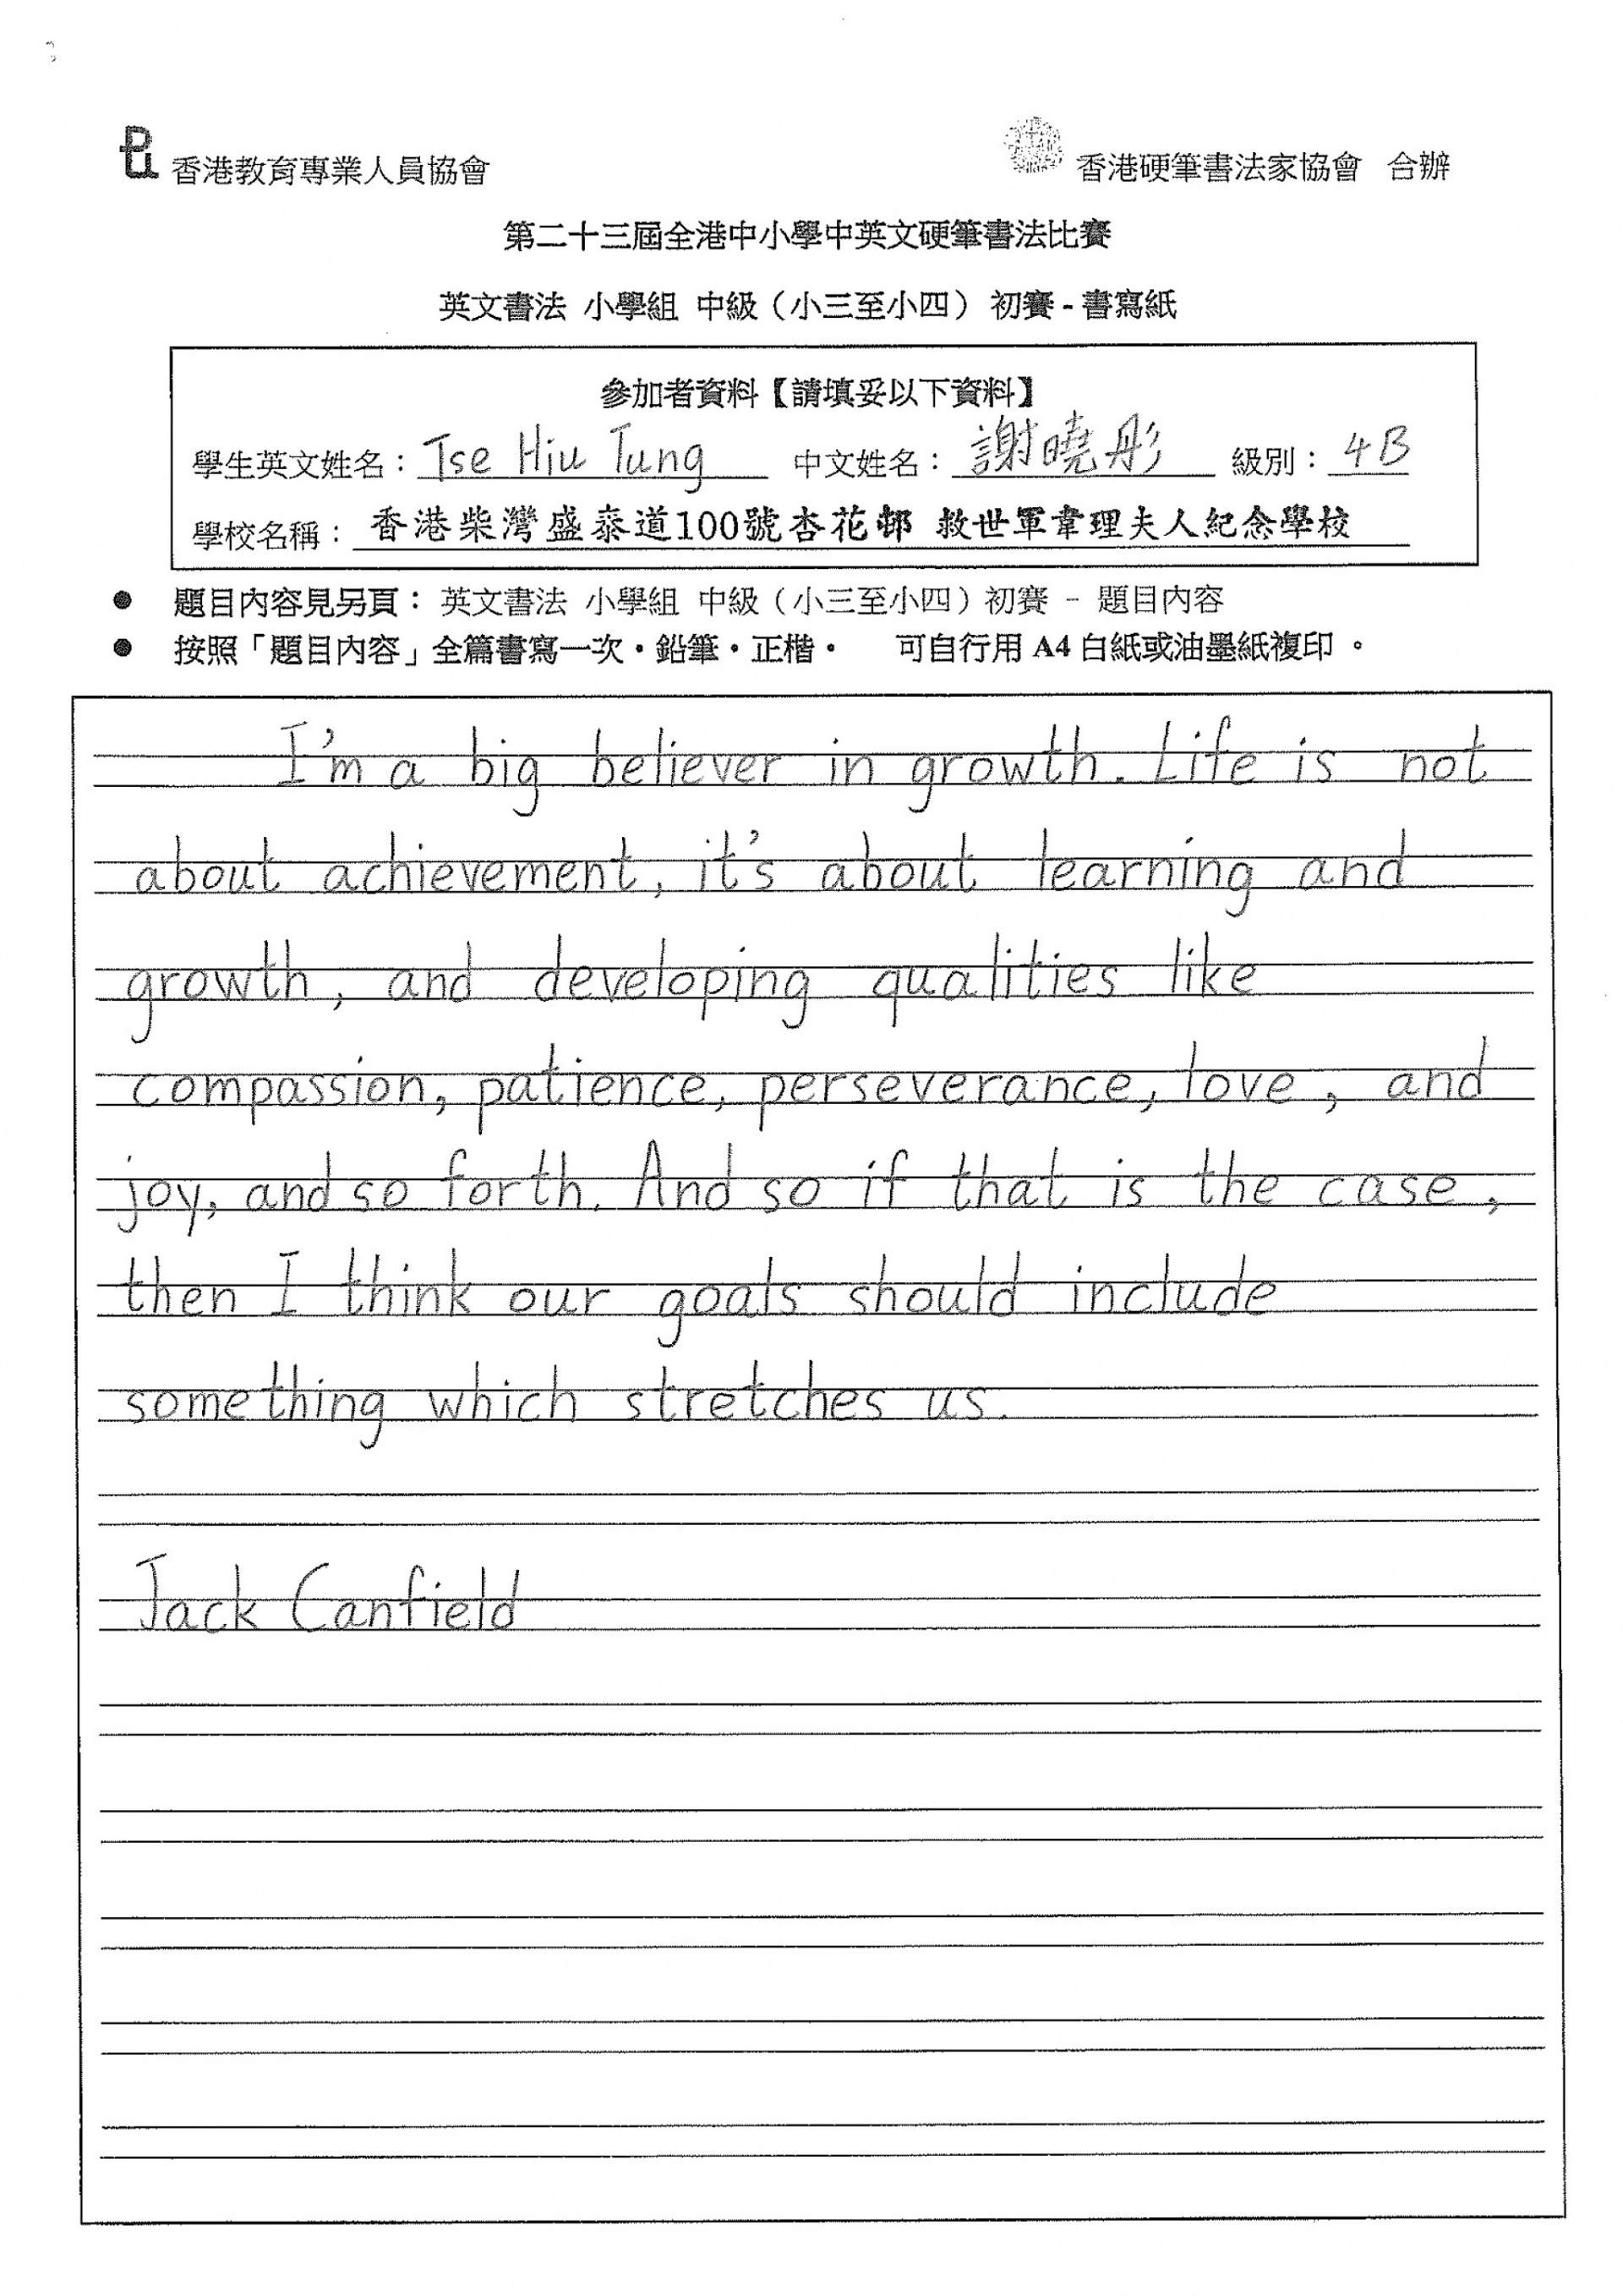 香港教育專業人員協會
香港硬筆書法家協會 合辦
第二十三屆全港中小學中英文硬筆書法比賽
英文書法 小學組 中級（小三至小四）初賽 - 書寫紙
參加者資料【請填妥以下資料】
學生英文姓名：Tse Hiu Tung 中文姓名：謝曉彤 級別：4B
學校名稱：香港柴灣盛泰道100號杏花邨 救世軍韋理夫人紀念學校
● 題目內容見另頁： 英文書法 小學組 中級（小三至小四）初賽 - 題目內容
● 按照「題目內容」全篇書寫一次・鉛筆・正楷・ 可自行用 A4 白紙或油墨紙複印。
I'm a big believer in growth. Life is not
about achievement, it's about learning and
growth, and developing qualities like
compassion, patience, perseverance, love, and
joy, and so forth. And so if that is the case,
then I think our goals should include
something which stretches us.
Jack Canfield